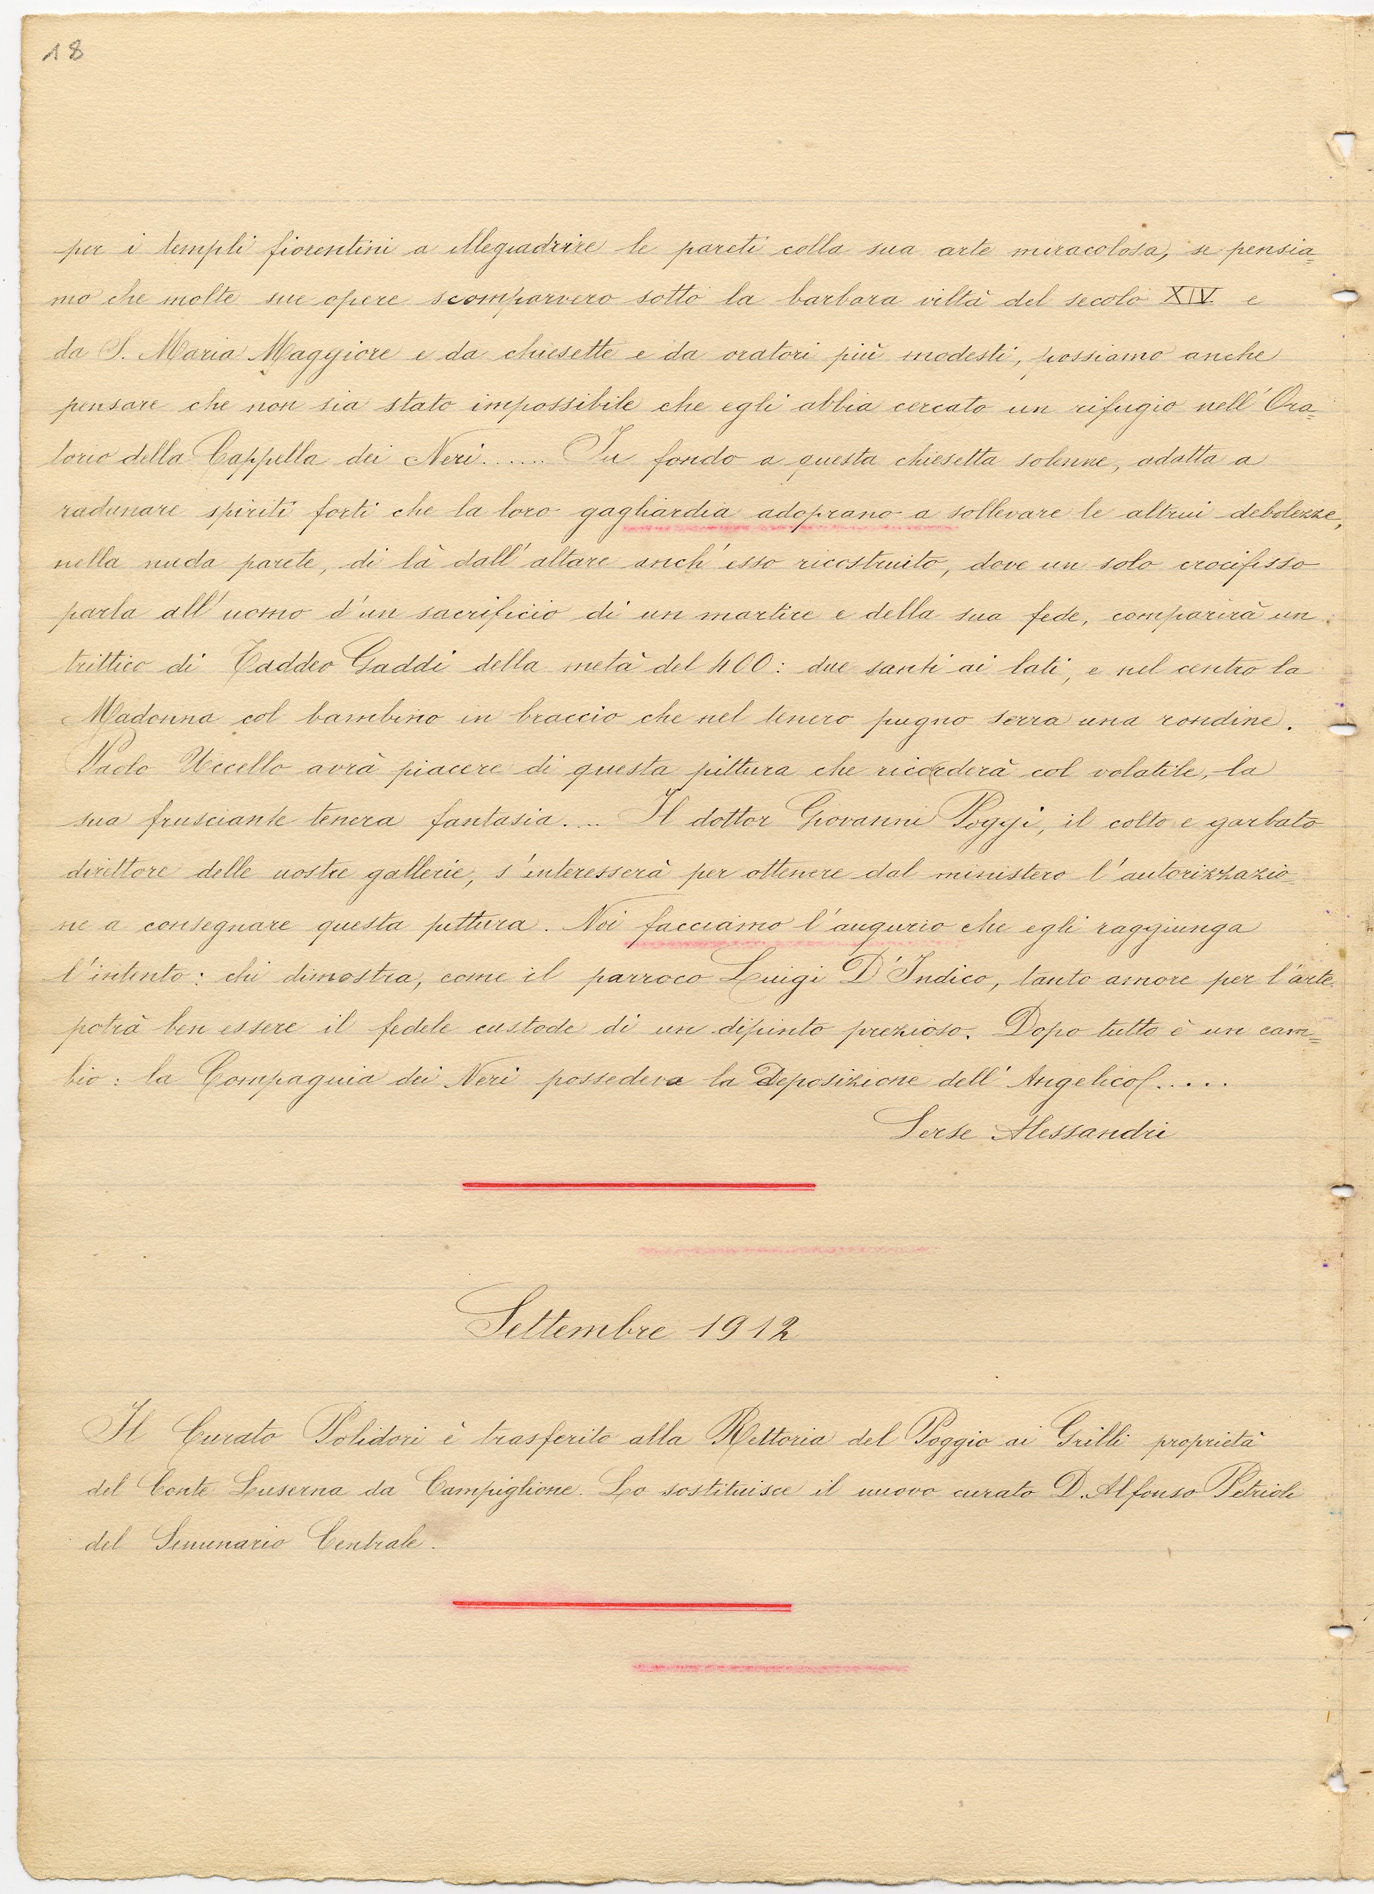 18
per i templi fiorentini a illeggiadrire le pareti colla sua arte miracolosa, se pensia=
mo che molte sue opere scomparvero sotto la barbara viltà del secolo XIV e
da S. Maria Maggiore e da chiesette e da oratori più modesti, possiamo anche
pensare che non sia stato impossibile che egli abbia cercato un rifugio nell'Ora=
torio della Cappella dei Neri...... In fondo a questa chiesetta solenne, adatta a
radunare spiriti forti che la loro gagliardia adoprano a sollevare le altrui debolezze,
nella nuda parete, di là dall'altare anch'esso ricostruito, dove un solo crocifisso
parla all'uomo d'un sacrificio di un martire e della sua fede, comparirà un
trittico di Taddeo Gaddi della metà del 400: due santi ai lati, e nel centro la
Madonna col bambino in braccio che nel tenero pugno serra una rondine.
Paolo Uccello avrà piacere di questa pittura che ricorderà col volatile, la
sua frusciante tenera fantasia.... Il dottor Giovanni Poggi, il colto e garbato
direttore delle nostre gallerie, s'interesserà per ottenere dal ministero l'autorizzazio=
ne a consegnare questa pittura. Noi facciamo l'augurio che egli raggiunga
l'intento: chi dimostra, come il parroco Luigi D'Indico, tanto amore per l'arte
potrà ben essere il fedele custode di un dipinto prezioso. Dopo tutto è un cam=
bio: la Compagnia dei Neri possedeva la Deposizione dell'Angelico!.....
Serse Alessandri
Settembre 1912
Il Curato Polidori è trasferito alla Rettoria del Poggio ai Grilli proprietà
del Conte Luserna da Campiglione. Lo sostituisce il nuovo curato D. Alfonso Petrioli
del Seminario Centrale.